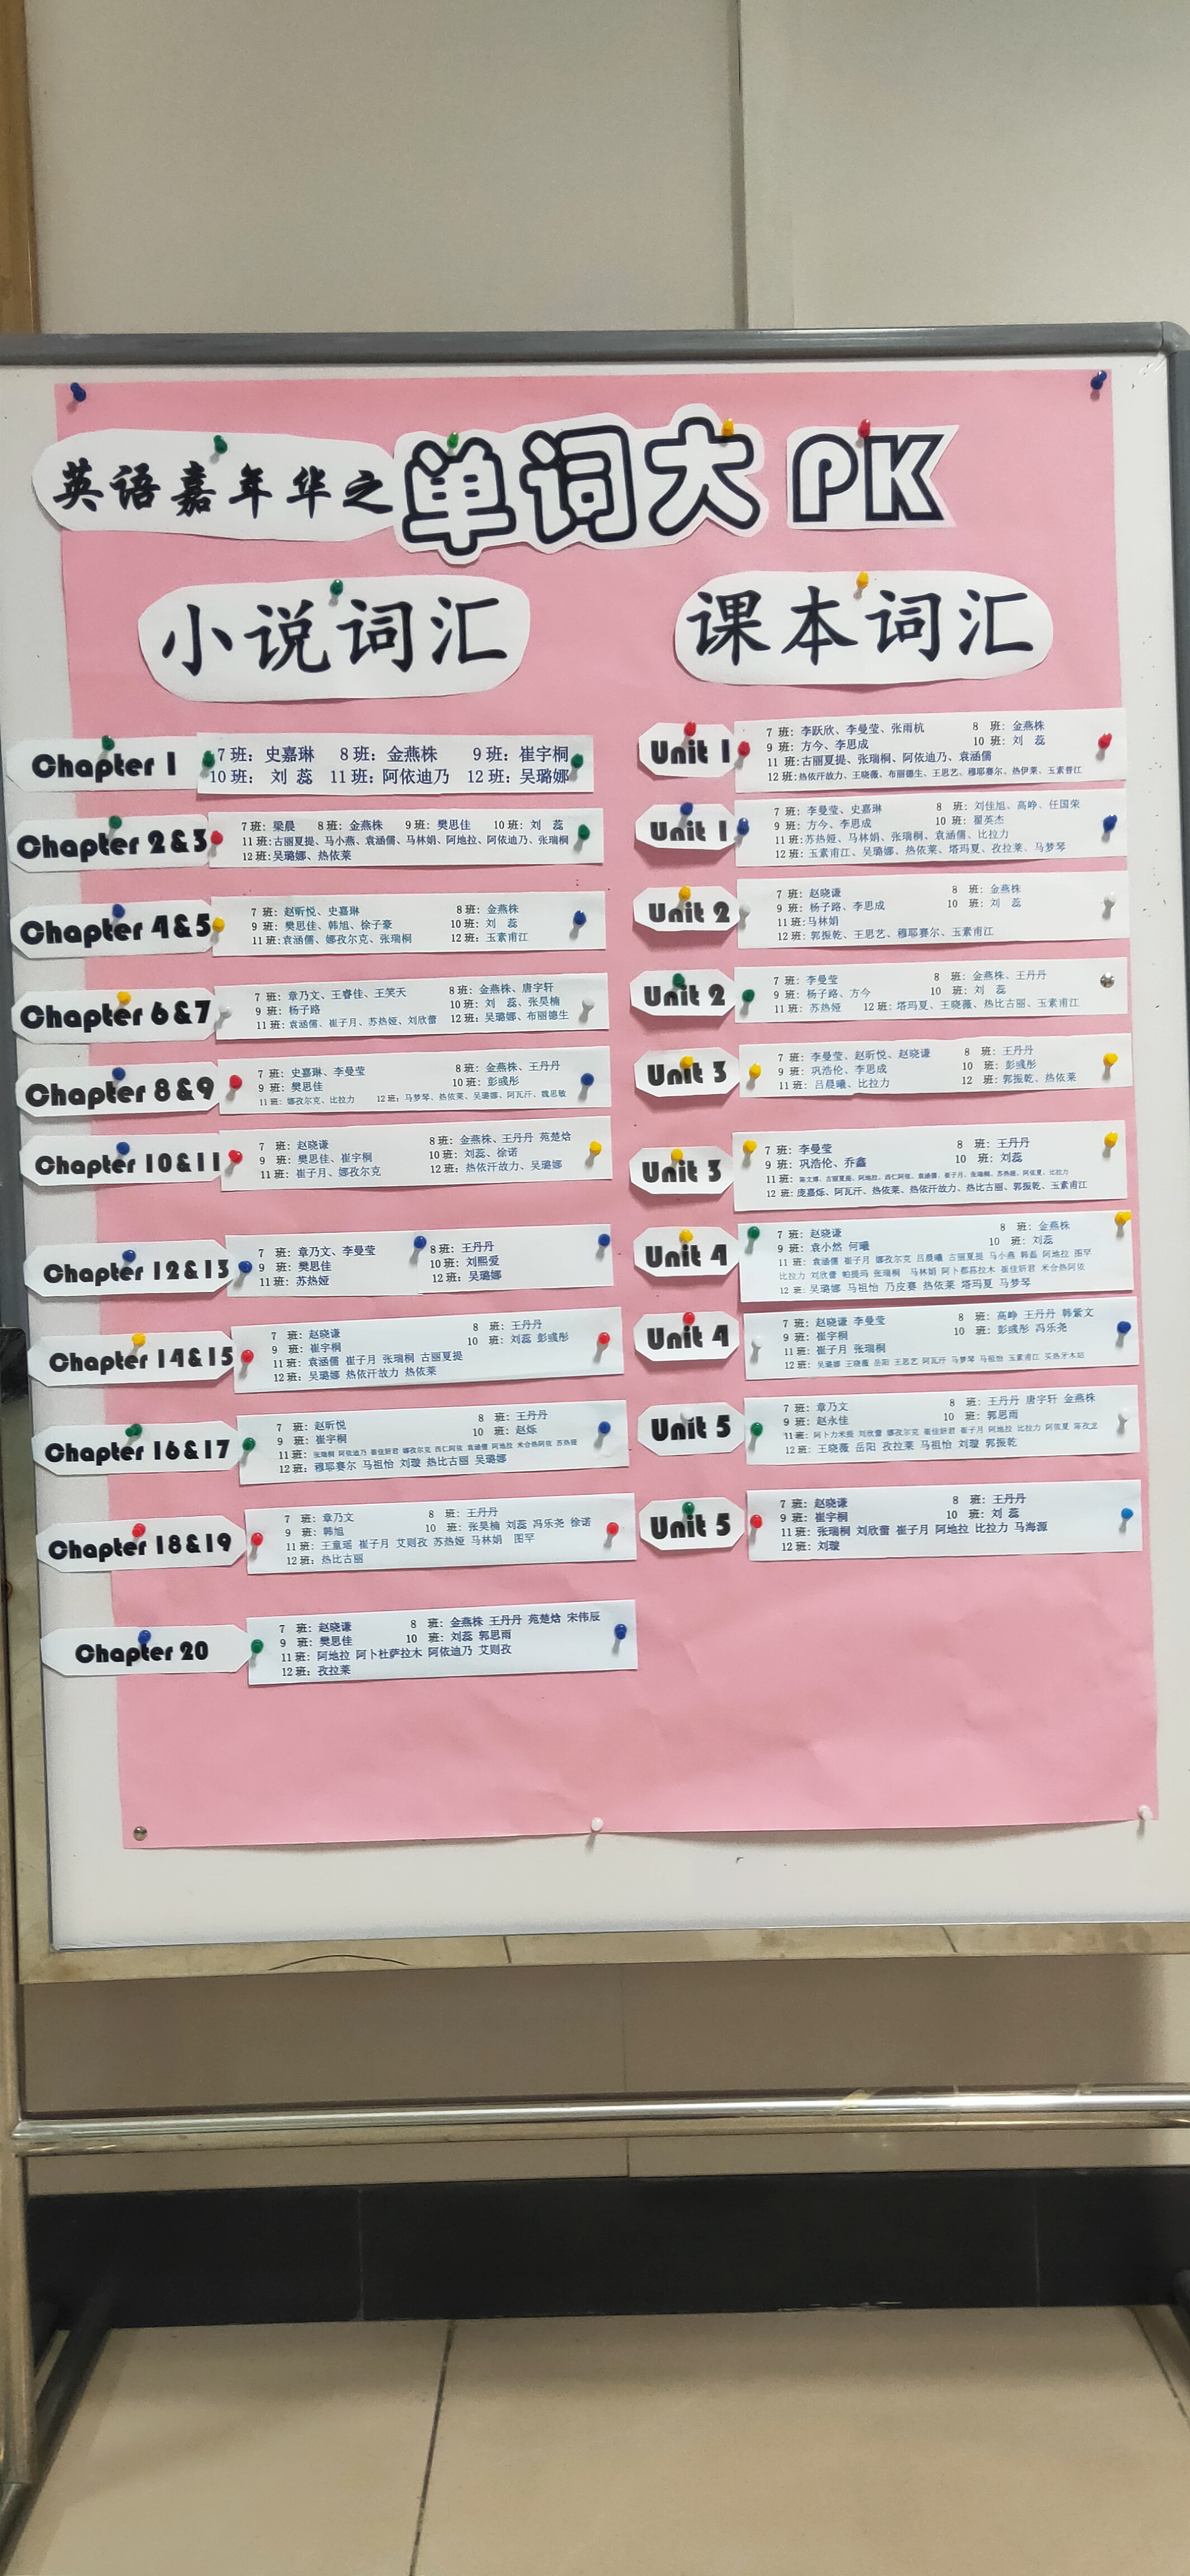 英语嘉年华之单词大PK
小说词汇
Chapter 1
7班：史嘉琳 8班：金燕株 9班：崔宇桐
10班：刘 蕊 11班：阿依迪乃 12班：吴璐娜
Chapter 2&3
7班：梁晨 8班：金燕株 9班：樊思佳 10班：刘 蕊
11班：古丽夏提、马小燕、袁涵儒、马林娟、阿地拉、阿依迪乃、张瑞桐
12班：吴璐娜、热依莱
Chapter 4&5
7班：赵昕悦、史嘉琳 8班：金燕株
9班：樊思佳、韩旭、徐子豪 10班：刘 蕊
11班：袁涵儒、娜孜尔克、张瑞桐 12班：玉素甫江
Chapter 6&7
7班：章乃文、王睿佳、王笑天 8班：金燕株、唐宇轩
9班：杨子路 10班：刘 蕊、张昊楠
11班：袁涵儒、崔子月、苏热娅、刘欣蕾 12班：吴璐娜、布丽德生
Chapter 8&9
7班：史嘉琳、李曼莹 8班：金燕株、王丹丹
9班：樊思佳 10班：彭彧彤
11班：娜孜尔克、比拉力 12班：马梦琴、热依莱、吴璐娜、阿瓦汗、魏思敏
Chapter 10&11
7 班：赵晓谦 8班：金燕株、王丹丹 苑楚焓
9 班：樊思佳、崔宇桐 10班：刘蕊、徐诺
11班：崔子月、娜孜尔克 12班：热依汗故力、吴璐娜
Chapter 12&13
7 班：章乃文、李曼莹 8班：王丹丹
9 班：樊思佳 10班：刘熙爱
11班：苏热娅 12班：吴璐娜
Chapter 14&15
7 班：赵晓谦 8 班：王丹丹
9 班：崔宇桐 10 班：刘蕊 彭彧彤
11班：袁涵儒 崔子月 张瑞桐 古丽夏提
12班：吴璐娜 热依汗故力 热依莱
Chapter 16&17
7 班：赵昕悦 8 班：王丹丹
9 班：崔宇桐 10 班：赵烁
11班：张瑞桐 阿依迪乃 崔佳妍君 娜孜尔克 西仁阿依 袁涵儒 阿地拉 米合热阿依 苏热娅
12班：穆耶赛尔 马祖怡 刘璇 热比古丽 吴璐娜
Chapter 18&19
7 班：章乃文 8 班：王丹丹
9 班：韩旭 10 班：张昊楠 刘蕊 冯乐尧 徐诺
11班：王童瑶 崔子月 艾则孜 苏热娅 马林娟 图罕
12班：热比古丽
Chapter 20
7 班：赵晓谦 8 班：金燕株 王丹丹 苑楚焓 宋伟辰
9 班：樊思佳 10 班：刘蕊 郭思雨
11班：阿地拉 阿卜杜萨拉木 阿依迪乃 艾则孜
12班：孜拉莱
课本词汇
Unit 1
7 班：李跃欣、李曼莹、张雨杭 8 班：金燕株
9 班：方今、李思成 10 班：刘 蕊
11 班：古丽夏提、张瑞桐、阿依迪乃、袁涵儒
12 班：热依汗故力、王晓薇、布丽德生、王思艺、穆耶赛尔、热伊莱、玉素普江
Unit 1
7 班：李曼莹、史嘉琳 8 班：刘佳旭、高峥、任国荣
9 班：方今、李思成 10 班：瞿英杰
11班：苏热娅、马林娟、张瑞桐、袁涵儒、比拉力
12班：玉素甫江、吴璐娜、热依莱、塔玛夏、孜拉莱、马梦琴
Unit 2
7 班：赵晓谦 8 班：金燕株
9 班：杨子路、李思成 10 班：刘 蕊
11班：马林娟
12班：郭振乾、王思艺、穆耶赛尔、玉素甫江
Unit 2
7 班：李曼莹 8 班：金燕株、王丹丹
9 班：杨子路、方今 10 班：刘 蕊
11班：苏热娅 12班：塔玛夏、王晓薇、热比古丽、玉素甫江
Unit 3
7 班：李曼莹、赵昕悦、赵晓谦 8 班：王丹丹
9 班：巩浩伦、李思成 10 班：彭彧彤
11 班：吕晨曦、比拉力 12 班：郭振乾、热依莱
Unit 3
7 班：李曼莹 8 班：王丹丹
9 班：巩浩伦、乔鑫 10 班：刘蕊
11 班：古丽夏提、阿地拉、西仁阿依、袁涵儒、崔子月、张瑞桐、苏热娅、阿依夏、比拉力
12 班：庞嘉烁、阿瓦汗、热依莱、热依汗故力、热比古丽、郭振乾、玉素甫江
Unit 4
7 班：赵晓谦 8 班：金燕株
9 班：袁小然 何曦 10 班：刘蕊
11 班：袁涵儒 崔子月 娜孜尔克 吕晨曦 古丽夏提 马小燕 韩磊 阿地拉 图罕
比拉力 刘欣蕾 帕提玛 张瑞桐 马林娟 阿卜都苏拉木 崔佳妍君 米合热阿依
12 班：吴璐娜 马祖怡 乃皮赛 热依莱 塔玛夏 马梦琴
Unit 4
7 班：赵晓谦 李曼莹 8 班：高峥 王丹丹 韩紫文
9 班：崔宇桐 10 班：彭彧彤 冯乐尧
11 班：崔子月 张瑞桐
12 班：吴璐娜 王晓薇 岳阳 王思艺 阿瓦汗 马梦琴 马祖怡 玉素甫江 买热牙木姑
Unit 5
7 班：章乃文 8 班：王丹丹 唐宇轩 金燕株
9 班：赵永佳 10 班：郭思雨
11班：阿卜力米提 刘欣蕾 娜孜尔克 崔佳妍君 崔子月 阿地拉 比拉力 阿依夏 陈孜龙
12班：王晓薇 岳阳 孜拉莱 马祖怡 刘璇 郭振乾
Unit 5
7 班：赵晓谦 8 班：王丹丹
9 班：崔宇桐 10 班：刘 蕊
11 班：张瑞桐 刘欣蕾 崔子月 阿地拉 比拉力 马海源
12 班：刘璇